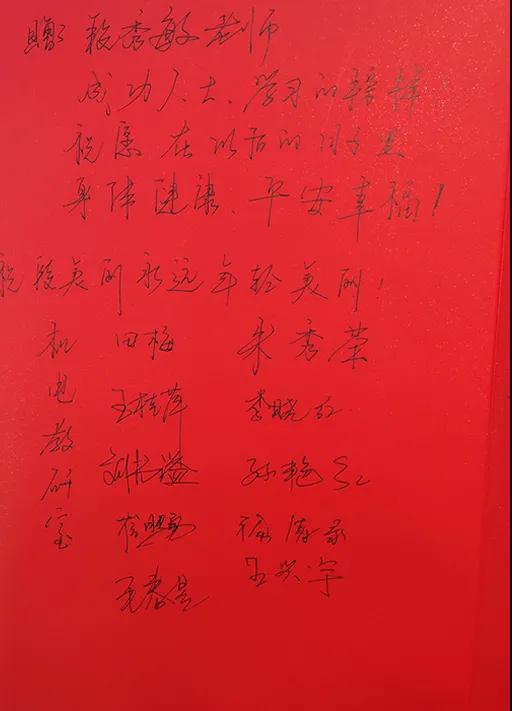 赠 赖秀敏老师
成功人士、学习的榜样
祝愿在以后的日子里
身体健康、平安幸福！
祝段美丽永远年轻美丽！
机电教研室
田梅 朱秀荣
王桂萍 李晓红
刘长溢 孙艳红
崔照勇
王春昱 王兴宇